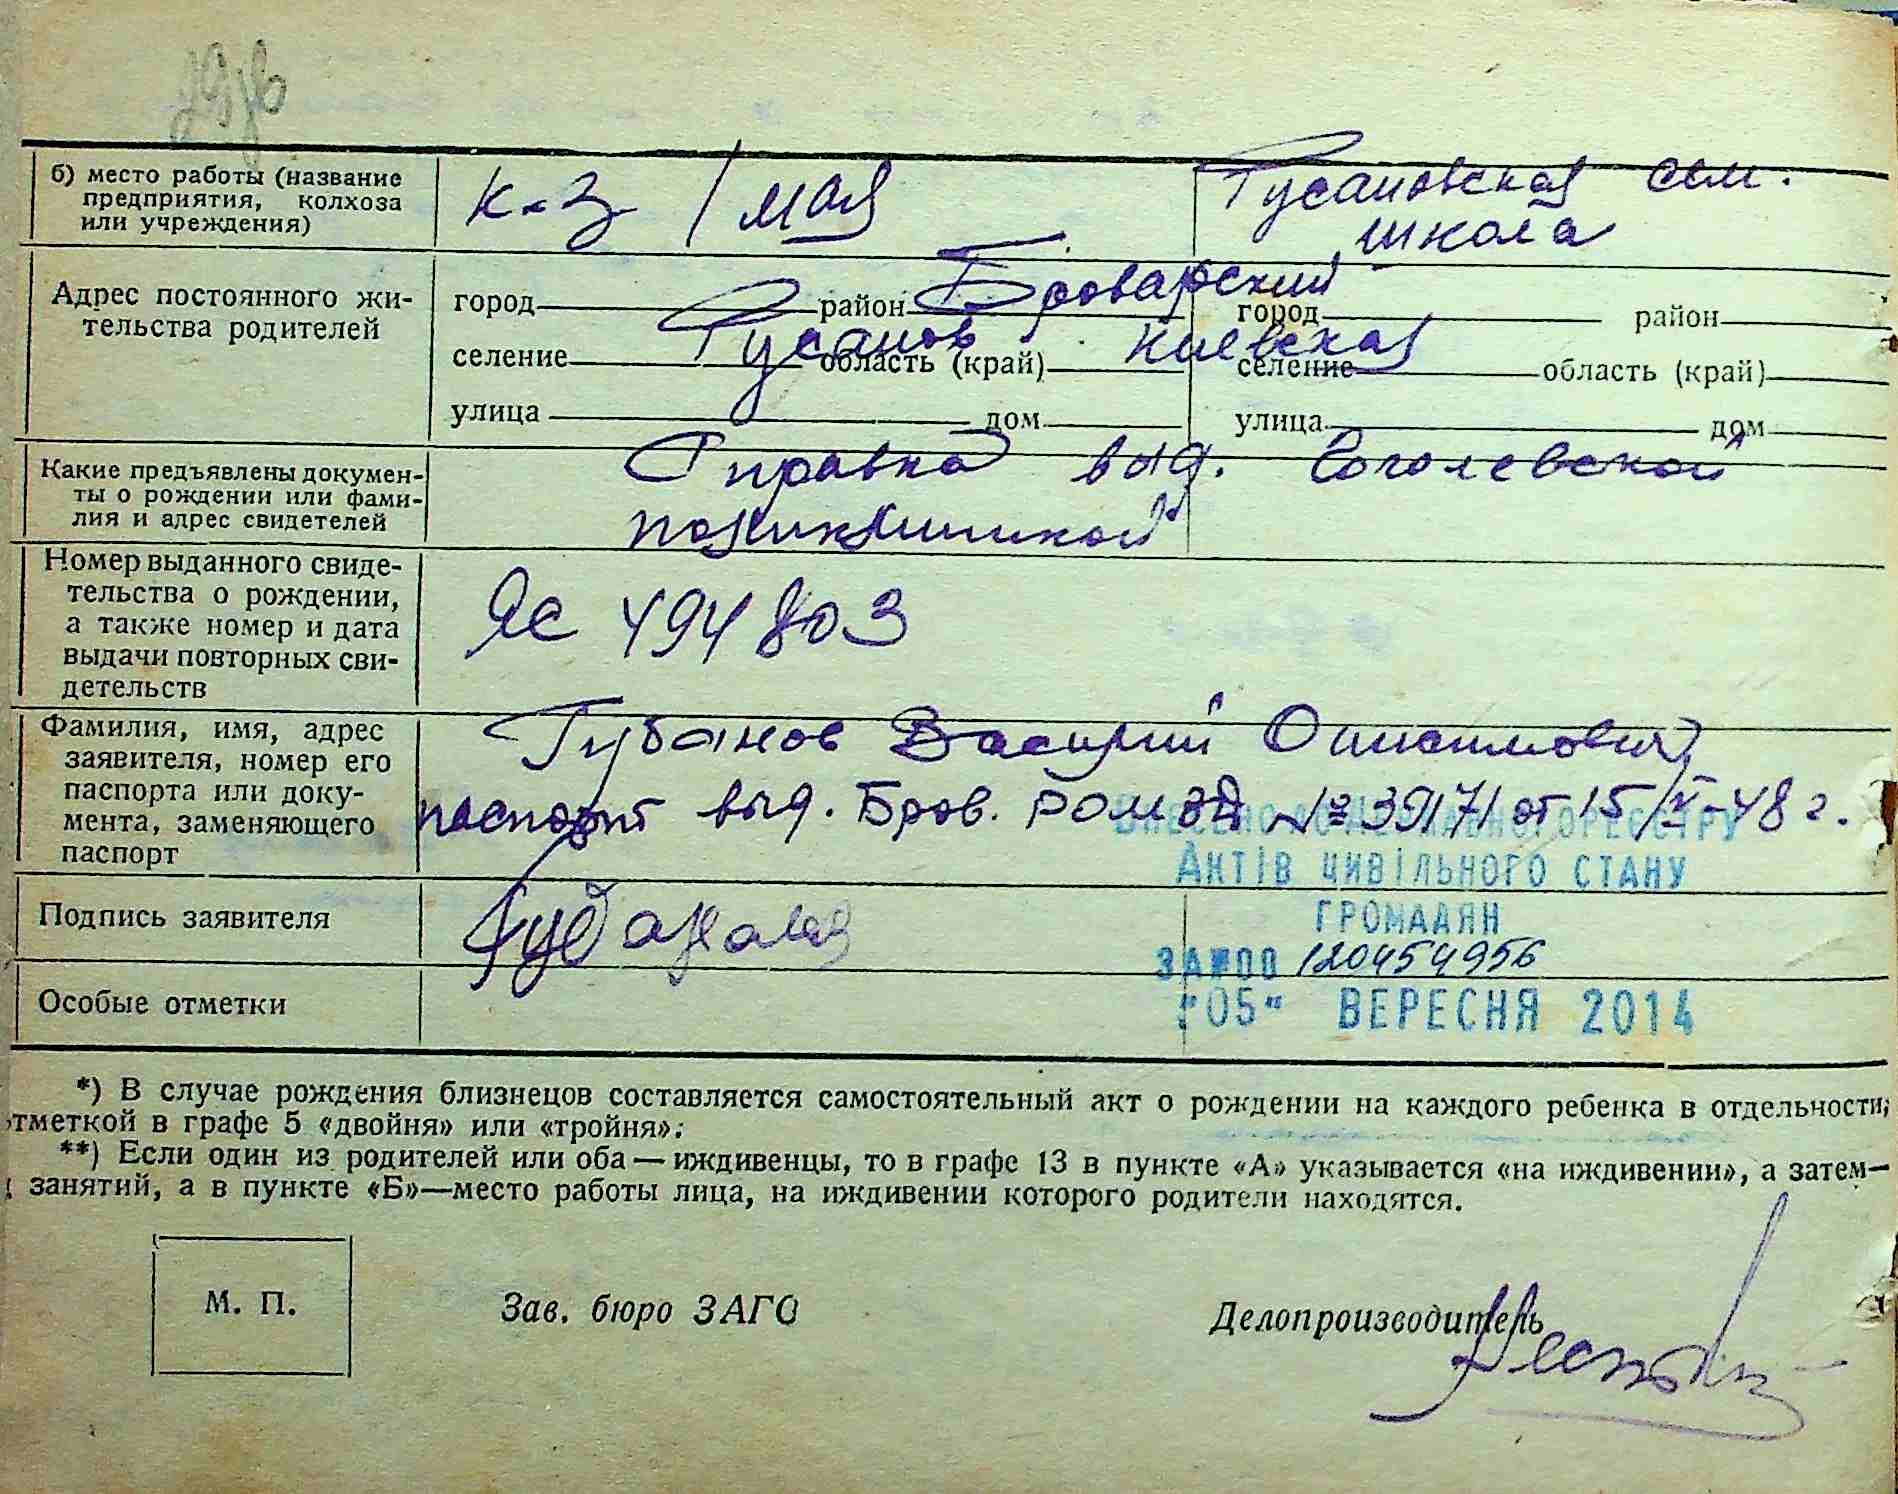 б) место работы (название
предприятия, колхоза
или учреждения)
к-з 1 мая
Русановская сем.
школа
Адрес постоянного жи-
тельства родителей
город район Броварский
селение Русанов область (край) Киевская
улица дом
город район
селение область (край)
улица дом
Какие предъявлены докумен-
ты о рождении или фами-
лия и адрес свидетелей
Справка выд. Гоголевской
поликлиникой
Номер выданного свиде-
тельства о рождении,
а также номер и дата
выдачи повторных сви-
детельств
ЯС 494803
Фамилия, имя, адрес
заявителя, номер его
паспорта или доку-
мента, заменяющего
паспорт
Губанов Василий Онисимович,
паспорт выд. Бров. РОМ № 3917 от 15/V-48 г.
ВНЕСЕНО ДО ДЕРЖАВНОГО РЕЄСТРУ
АКТІВ ЦИВІЛЬНОГО СТАНУ
ГРОМАДЯН
ЗА №00 120454956
"05" ВЕРЕСНЯ 2014
Подпись заявителя
Особые отметки
*) В случае рождения близнецов составляется самостоятельный акт о рождении на каждого ребенка в отдельности,
отметкой в графе 5 «двойня» или «тройня».
**) Если один из родителей или оба — иждивенцы, то в графе 13 в пункте «А» указывается «на иждивении», а затем—
занятий, а в пункте «Б»—место работы лица, на иждивении которого родители находятся.
М. П.
Зав. бюро ЗАГС
Делопроизводитель